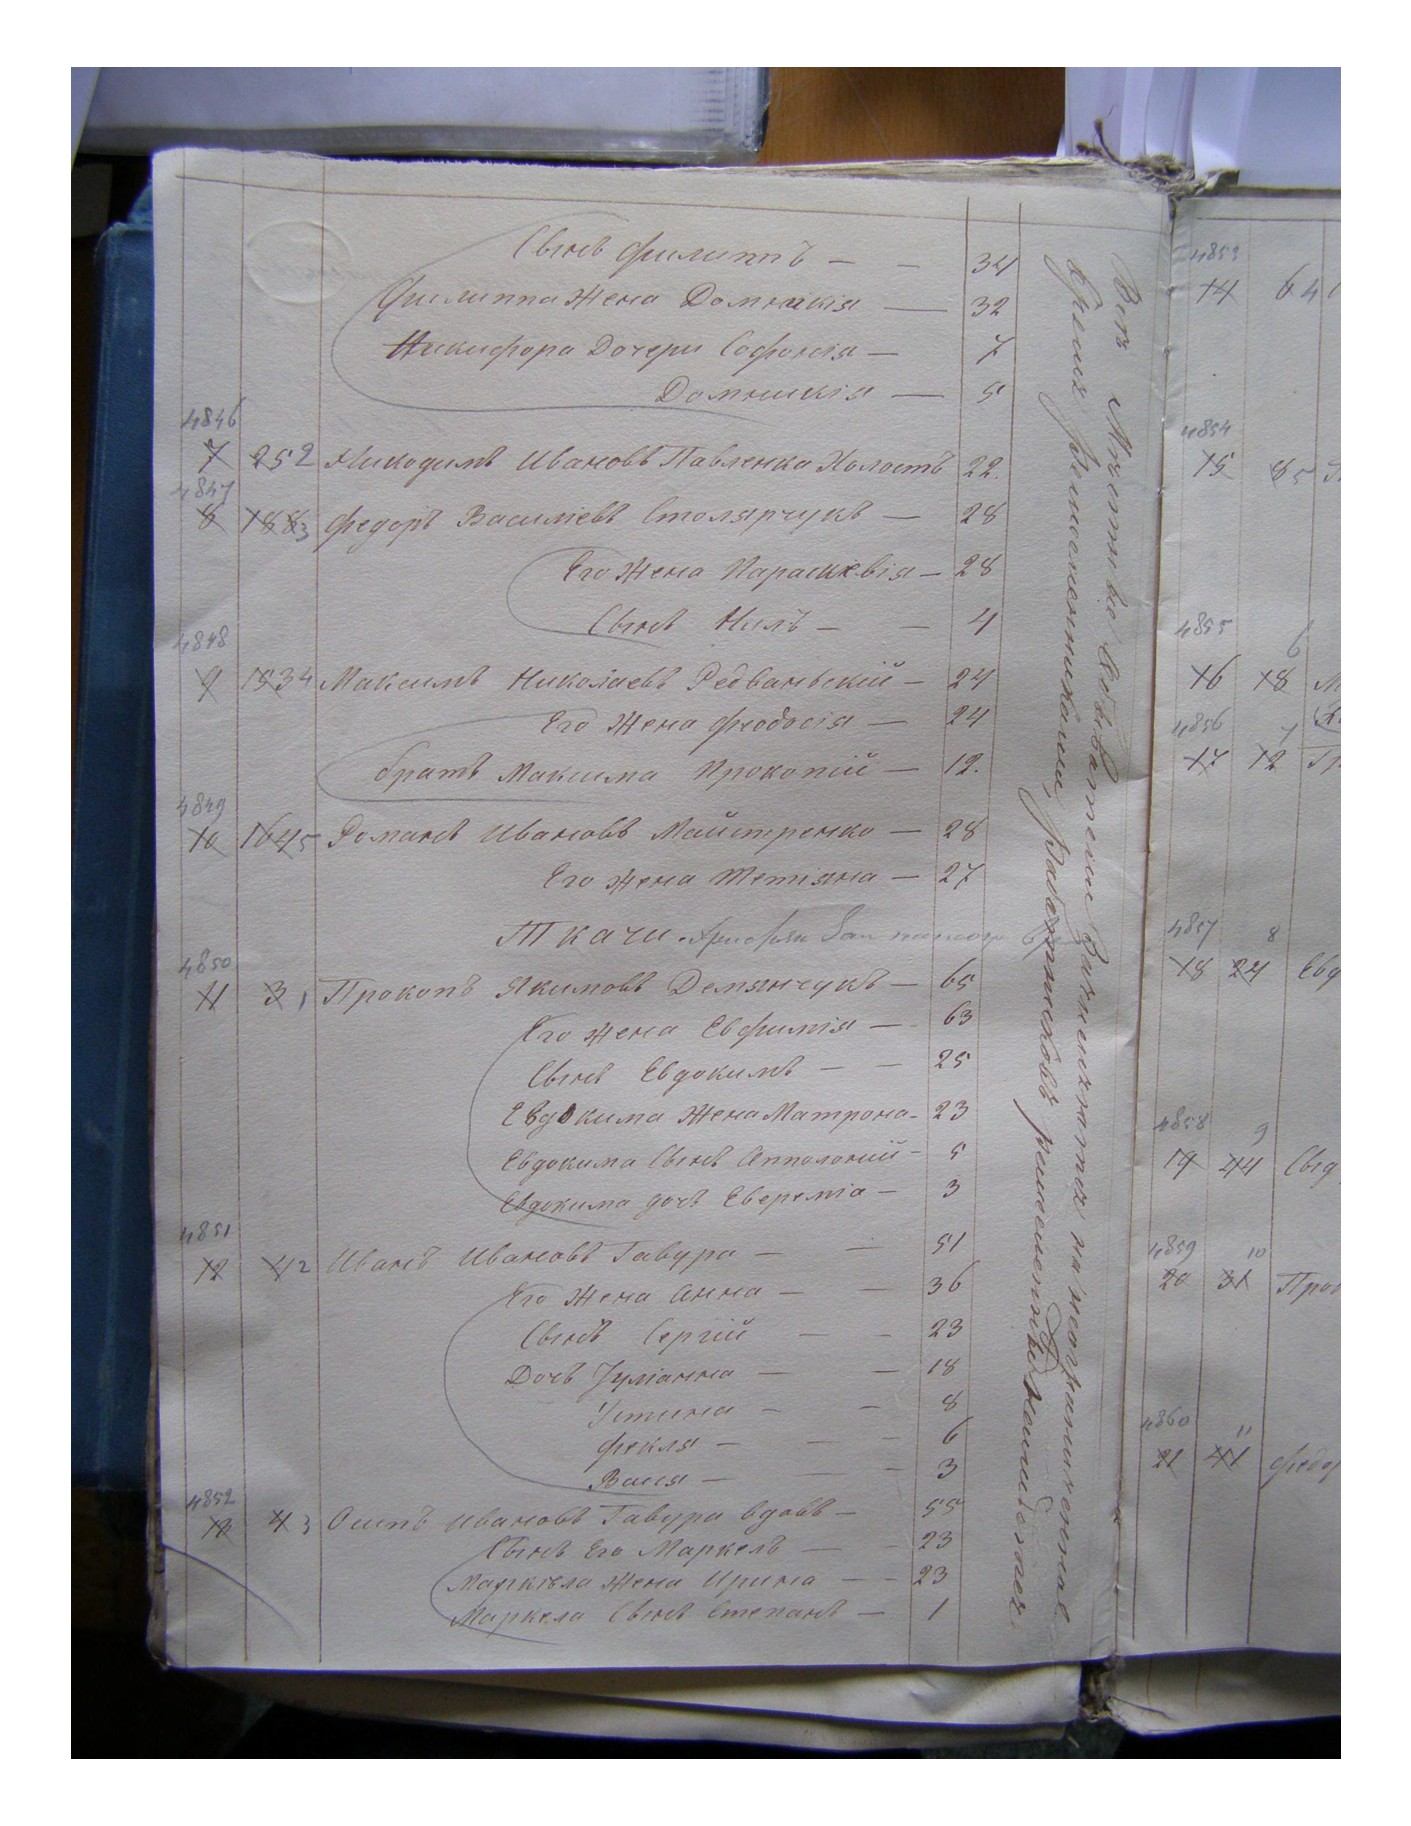 Сынъ Филиппъ — — 34
Филиппа Жена Домникія — 32
Никифора Дочери Софонія — 7
Домникія — 5
4846
7 252 Никодимъ Ивановъ Павленко Холостъ 22.
4847
8 1883 Федоръ Василіевъ Столярчукъ — 28
Его Жена Параскевія — 28
Сынъ Нилъ — — 4
4848
9 1934 Максимъ Николаевъ Редваньскій — 24
Его Жена Феодосія — 24
братъ Максима Прокопій — 12.
4849
10 1645 Романъ Ивановъ Майстренко — 28
Его Жена Тетяна — 27
Ткачи.
4850
11 3 1 Прокопъ Якимовъ Демянчукъ — 65
Его Жена Евфимія — 63
Сынъ Евдокимъ — — 25
Евдокима Жена Матрона — 23
Евдокима Сынъ Апполоній — 5
Евдокима дочь Еверемія — 3
4851
12 42 Иванъ Ивановъ Гавура — — 51
Его Жена Анна — — 36
Сынъ Сергій — — 23
Дочъ Іуліанна — — 18
Устина — — 8
Фекля — — — 6
Вася — — — 3
4852
13 43 Осипъ Ивановъ Гавура вдовъ — 55
Сынъ Его Маркелъ — — 23
Маркела Жена Ирина — — 23
Маркела Сынъ Степанъ — 1
Вотъ обыватели на неограниченное
время ремесленниками, работниковъ
4853
14 6 4
4854
15 8 5
4855
6
16 18 М
4856
7
17 12 Гр
4857
8
18 24 Евд
4858
9
19 44 Сид
4859
10
20 31 Прок
4860
11
21 41 Федор